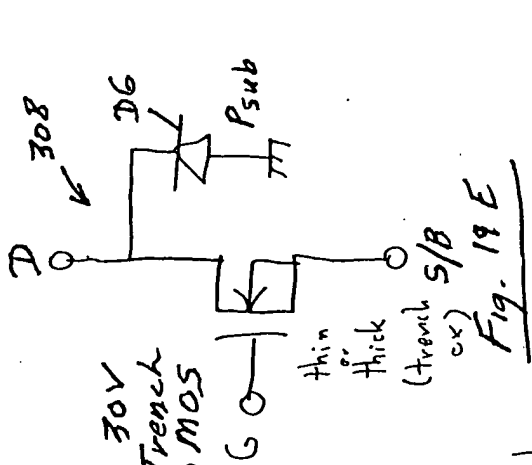 308
D
D6
Psub
30V
Trench
MOS
G
thin
or
thick
(trench
ox)
S/B
Fig. 19 E